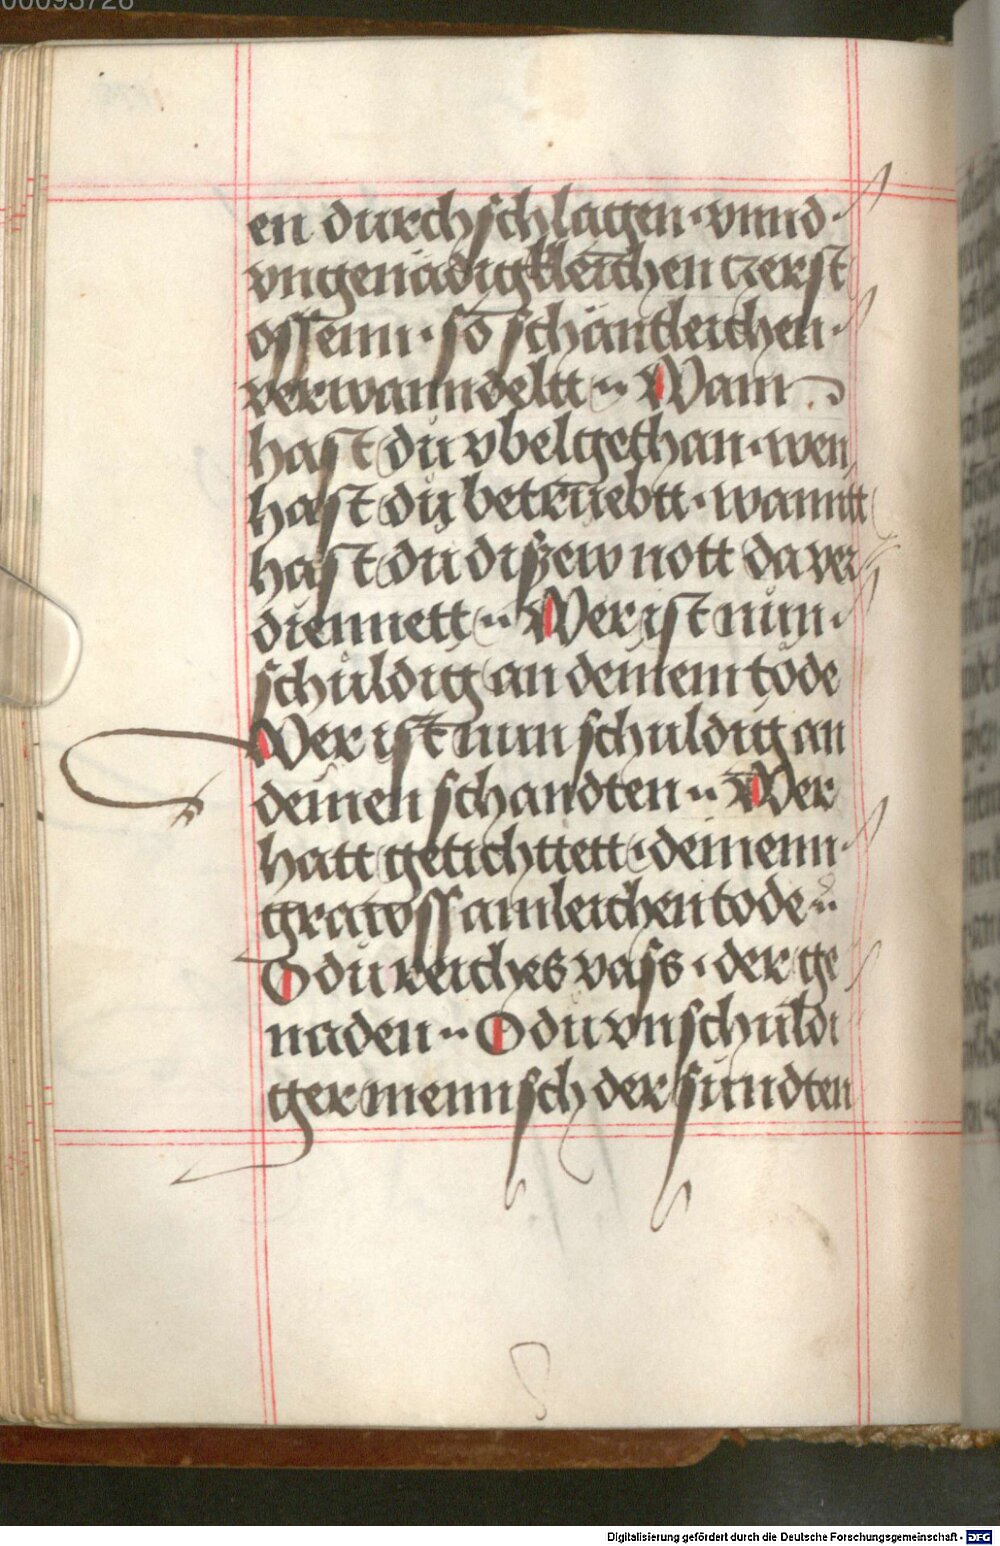 00093728
en durchschlagen · vnnd ·
vngenädigkleichen czerst
ossenn · so schäntleichen ·
verwanndeltt ·· Wann
hast du vbel gethan · wen
hast du betrüebtt · wamitt
hast du diszew nott da ver
diennett ·· Wer ist nün ·
schuldig an deinem tode
Wer ist nun schuldig an
deinen schandten ·· Wer
hatt getichttett · deinenn ·
grawssamleichen tode ··
O du reiches vass · der ge
naden ·· O du vnschuldi
ger mennsch der sündten
Digitalisierung gefördert durch die Deutsche Forschungsgemeinschaft - DFG